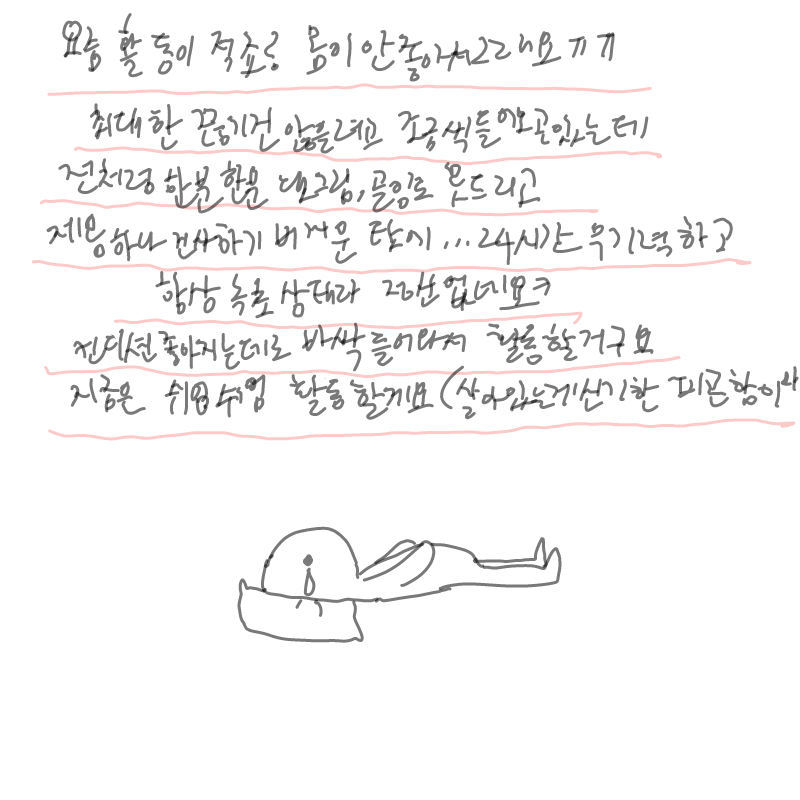 요즘 활동이 적죠? 몸이 안좋아서그래요ㅠㅠ
최대한 끈기건 않을려고 조금씩들어오곤있는데
전처럼 한분한분 대화그림, 글임도 못드리고
제몸하나 건사하기 버거운 탓에...24시간 무기력하고
항상 녹초 상태라 정신없네요ㅋ
컨디션좋아지는데로 바싹들어와서 활동할거구요
지금은 쉬엄쉬엄 활동할게요(살아있는게신기한 피곤함이라